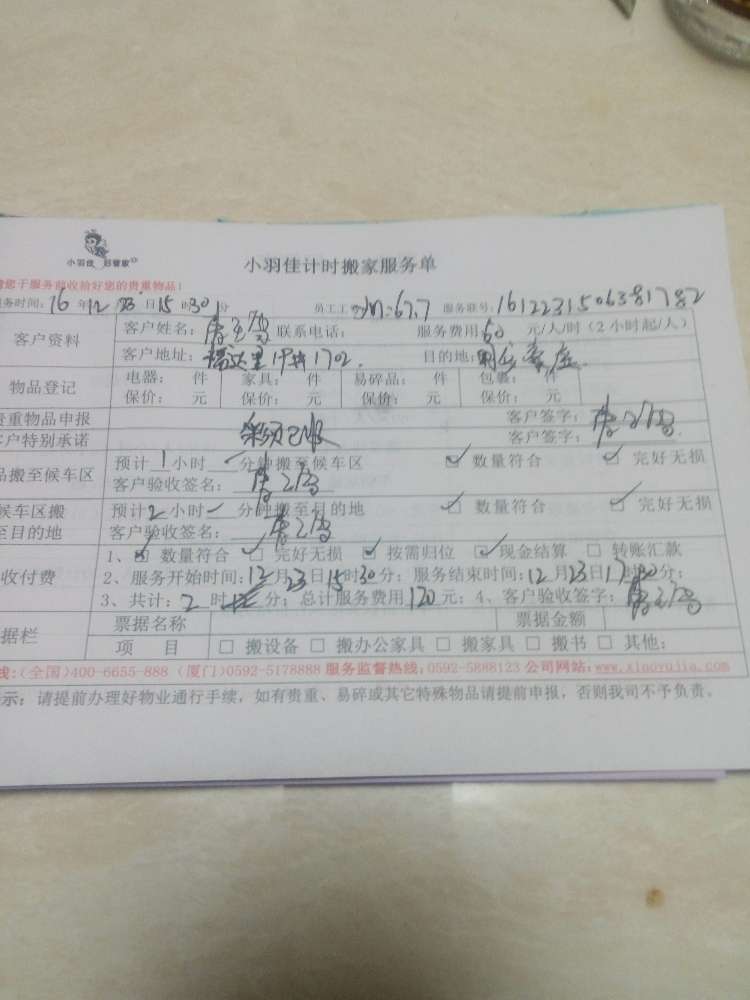 小羽佳 好管家
小羽佳计时搬家服务单
请您于服务前收给好您的贵重物品!
服务时间: 16 年 12 月 23 日 15 时 30 分 员工工号: 服务联号: 1612231506381782
客户资料
客户姓名: 联系电话: 服务费用 60 元/人/时(2小时起/人)
客户地址: 1702 目的地:
物品登记
电器: 件 家具: 件 易碎品: 件 包裹: 件
保价: 元 保价: 元 保价: 元 保价: 元
贵重物品申报 客户签字:
客户特别承诺 客户签字:
品搬至候车区
预计 1 小时 分钟搬至候车区 数量符合 完好无损
客户验收签名:
候车区搬至目的地
预计 2 小时 分钟搬至目的地 数量符合 完好无损
客户验收签名:
收付费
1、 数量符合 完好无损 按需归位 现金结算 转账汇款
2、服务开始时间: 12 月 23 日 15 时 30 分; 服务结束时间: 12 月 23 日 17 时 30 分;
3、共计: 2 时 分; 总计服务费用 120 元; 4、客户验收签字:
据栏
票据名称 票据金额
项 目 搬设备 搬办公家具 搬家具 搬书 其他:
线:(全国)400-6655-888 (厦门)0592-5178888 服务监督热线:0592-5888123 公司网站:www.xiaoyujia.com
示: 请提前办理好物业通行手续, 如有贵重、易碎或其它特殊物品请提前申报, 否则我司不予负责。